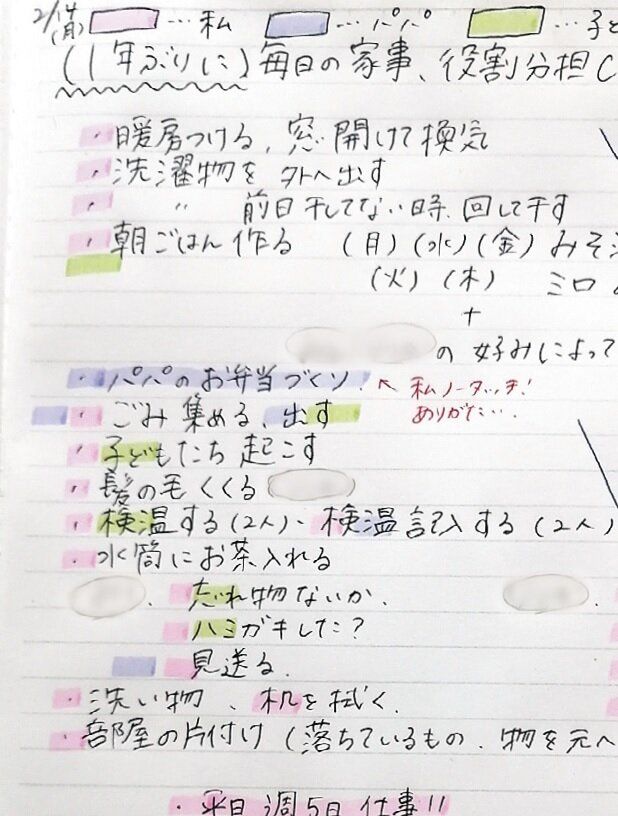 2/14(月) …私 …パパ …子ど
(1年ぶりに)毎日の家事、役割分担
・暖房つける、窓開けて換気
・洗濯物を外へ出す
・〃 前日干してない時、回して干す
・朝ごはん作る (月)(水)(金)みそ
(火)(木) ミロ
+
の好みによって
・パパのお弁当づくり! ← 私ノータッチ!
ありがた…。
・ごみ集める、出す
・子どもたち起こす
・髪の毛くくる
・検温する(2人)・検温記入する(2人)
・水筒にお茶入れる
・忘れ物ないか、
・ハミガキした?
見送る。
・洗い物、机を拭く。
・部屋の片付け(落ちているもの、物を元へ
・平日週5日仕事!!